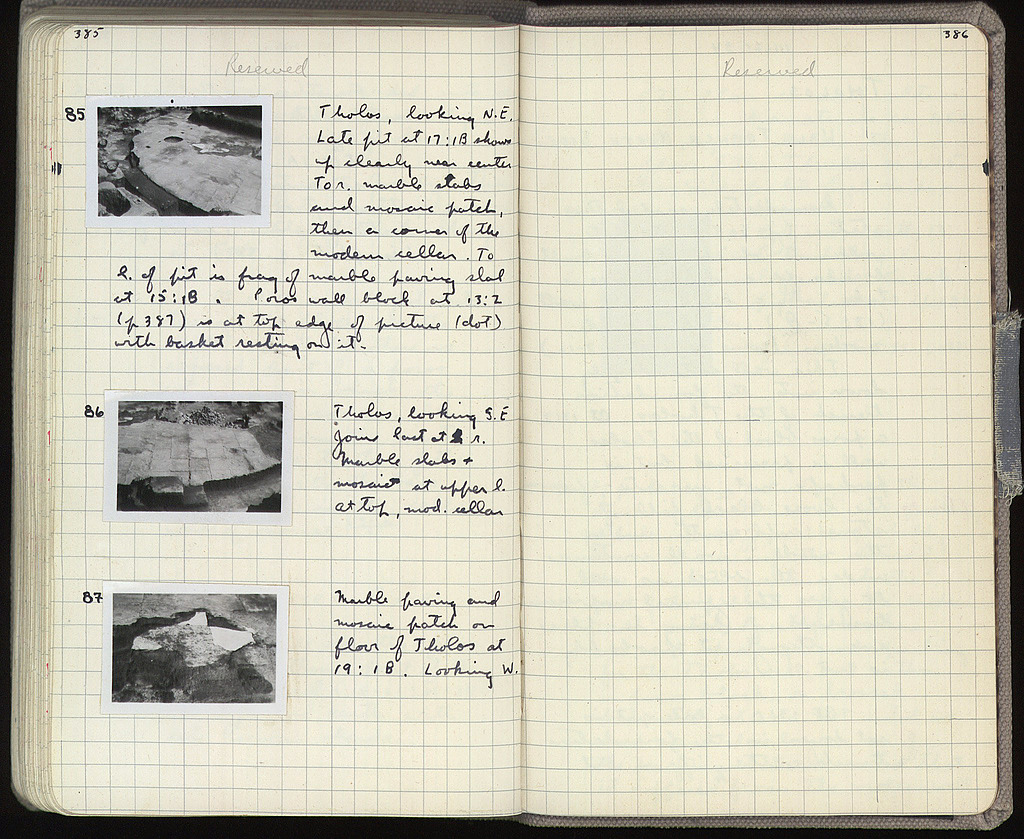 385
Reserved
85
Tholos, looking N.E.
Late pit at 17:1B shows
up clearly near center
To r. marble slabs
and mosaic patch,
then a corner of the
modern cellar. To
l. of pit is frag of marble paving slab
at 15:1B. Poros wall block at 13:2
(p 387) is at top edge of picture (dot)
with basket resting on it.
86
Tholos, looking S.E
Joins last at r.
Marble slabs +
mosaic at upper l.
at top, mod. cellar
87
Marble paving and
mosaic patch on
floor of Tholos at
19:1B. Looking W.
386
Reserved